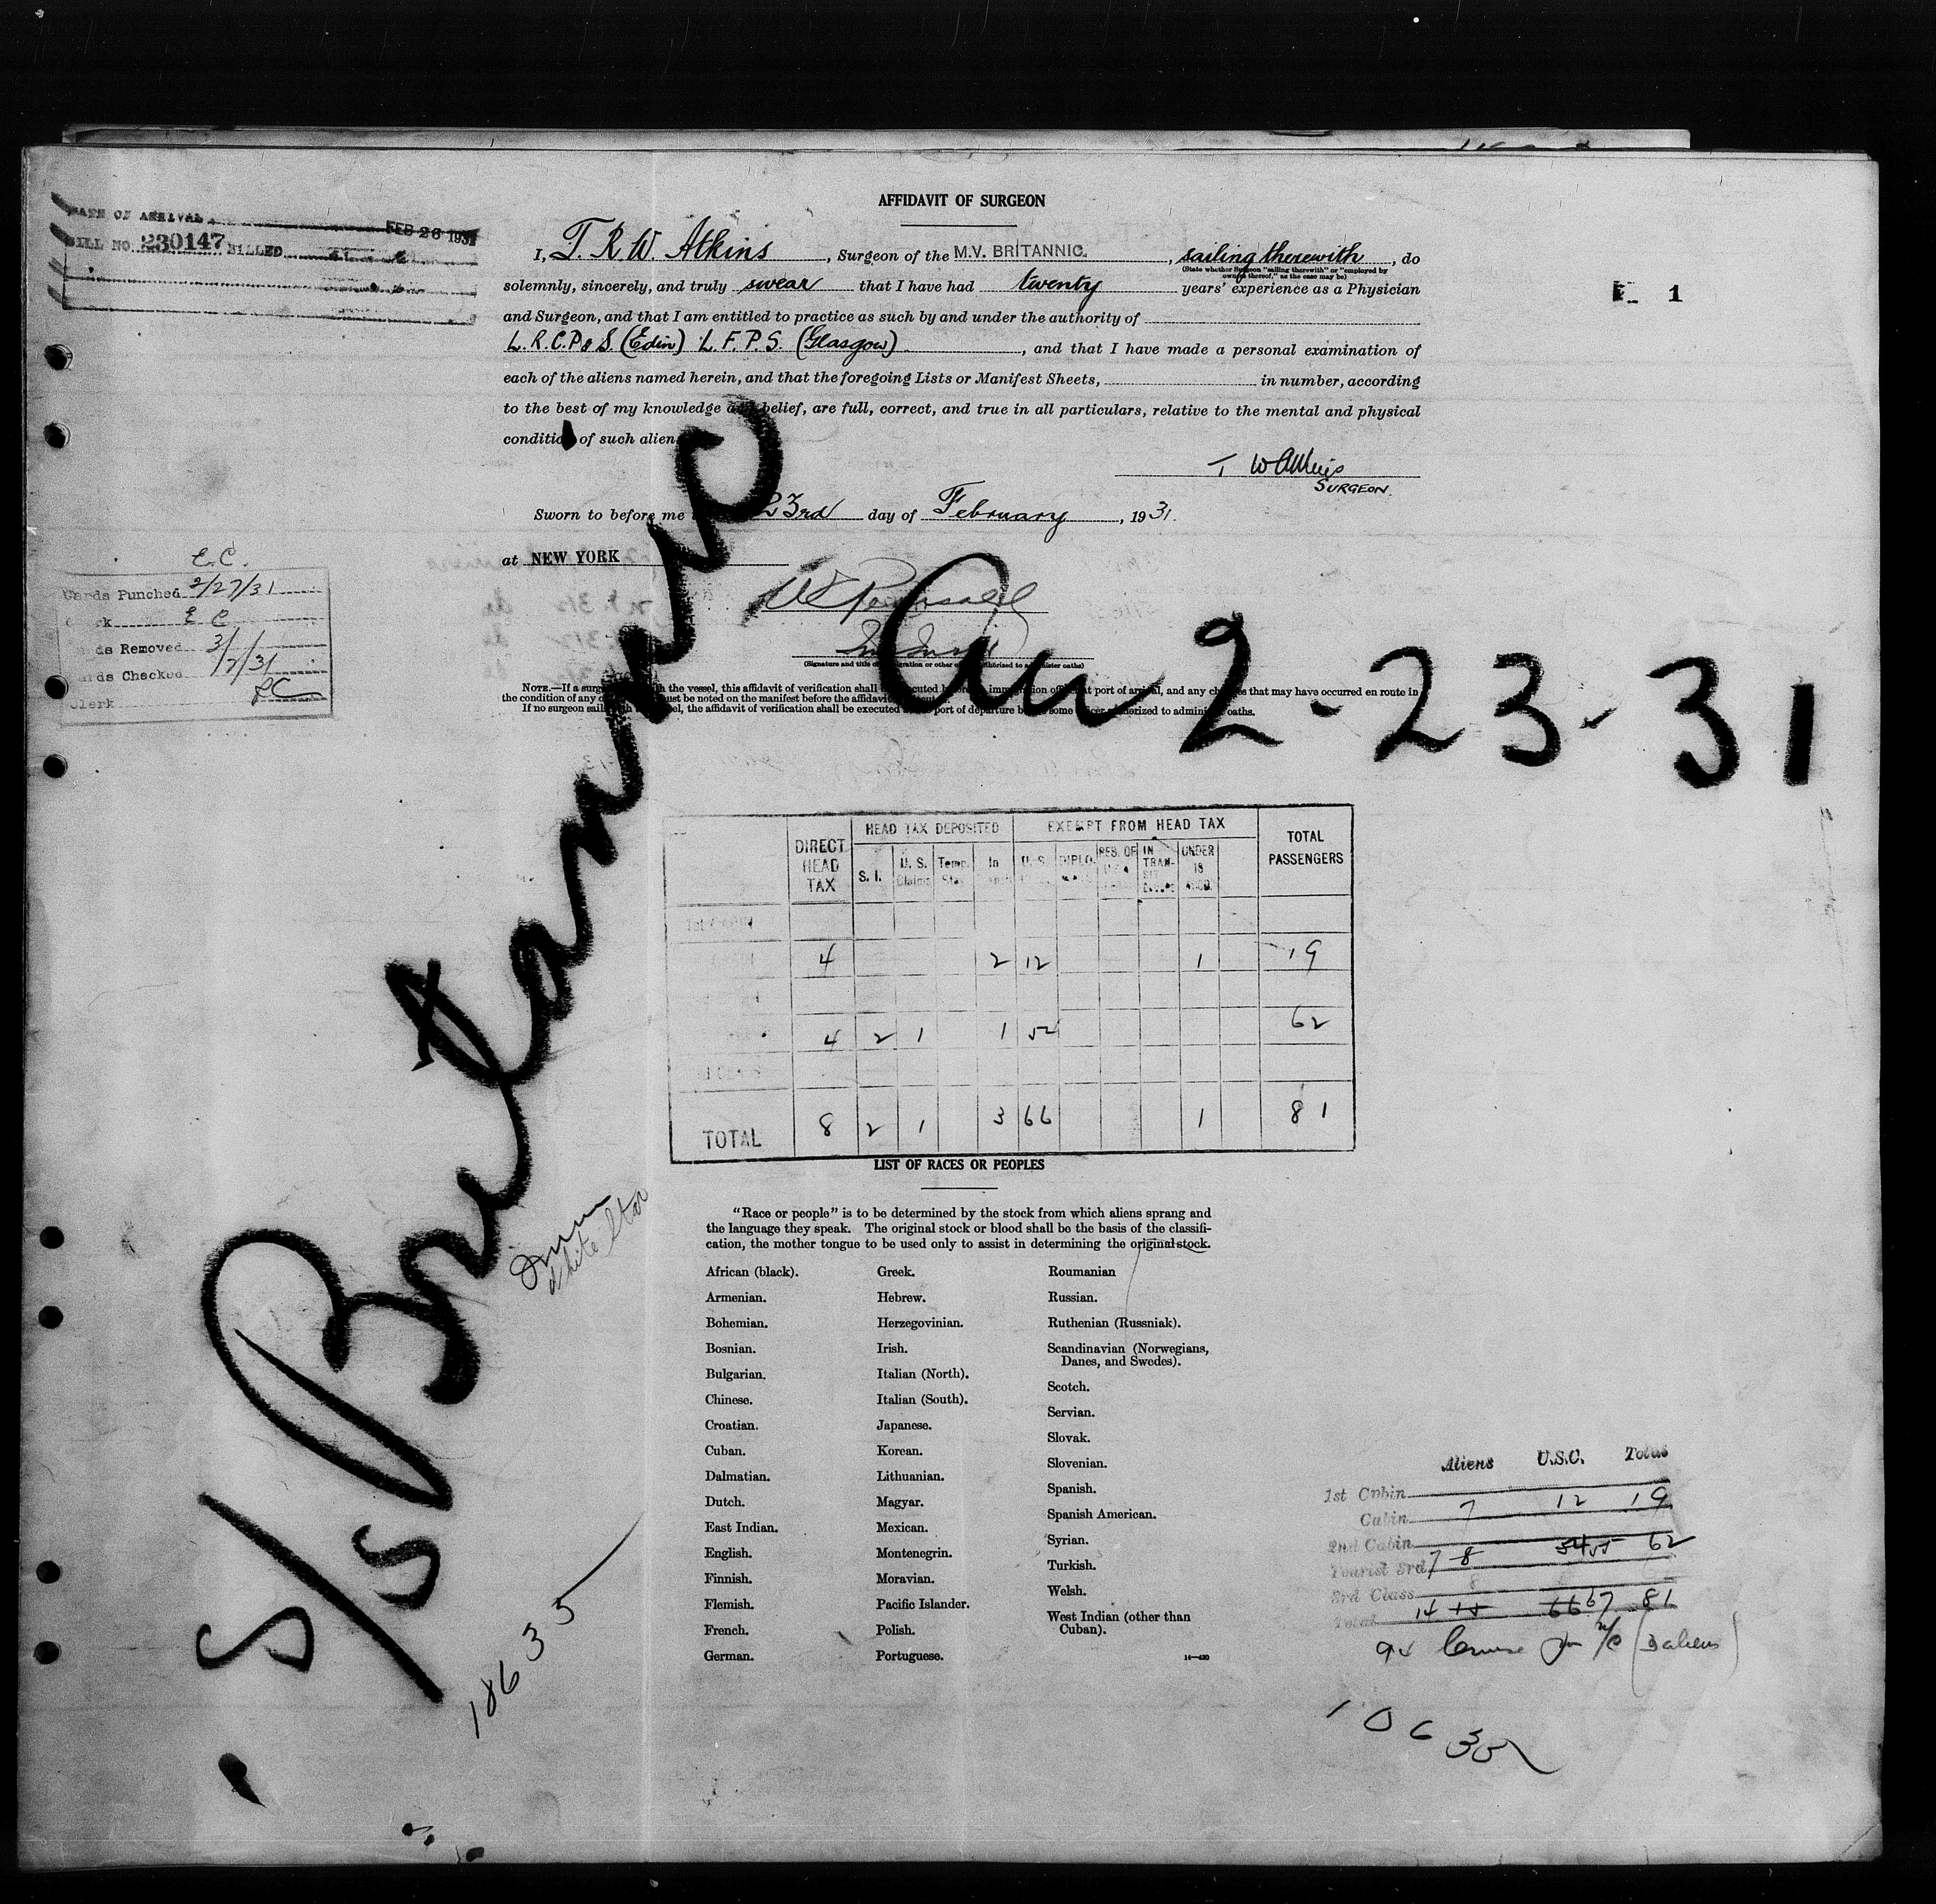 AFFIDAVIT OF SURGEON
DATE OF ARRIVAL FEB 26 1931
BILL NO. 230147 BILLED
I, T. R. W. Atkins, Surgeon of the M.V. BRITANNIC., sailing therewith, do
(State whether Surgeon "sailing therewith" or "employed by
owners thereof," as the case may be)
solemnly, sincerely, and truly swear that I have had twenty years' experience as a Physician
and Surgeon, and that I am entitled to practice as such by and under the authority of
L.R.C.P & S. (Edin) L.F.P.S. (Glasgow), and that I have made a personal examination of
each of the aliens named herein, and that the foregoing Lists or Manifest Sheets, in number, according
to the best of my knowledge and belief, are full, correct, and true in all particulars, relative to the mental and physical
condition of such alien
1
T W Atkins
SURGEON.
Sworn to before me 23rd day of February, 1931.
at NEW YORK
E.C.
Cards Punched 2/27/31
Clerk E C
Cards Removed 3/
Cards Checked 7/31
Clerk
(Signature and title of immigration or other officer authorized to administer oaths)
NOTE.—If a surgeon sails with the vessel, this affidavit of verification shall be executed before an immigration officer at port of arrival, and any changes that may have occurred en route in
the condition of any must be noted on the manifest before the affidavit
If no surgeon sails with the vessel, the affidavit of verification shall be executed at the port of departure before some officer authorized to administer oaths.
S/S Britannic
Arr 2-23-31
DIRECT HEAD TAX HEAD TAX DEPOSITED EXEMPT FROM HEAD TAX TOTAL PASSENGERS
S. I. U. S. Claims Temp. Stay In U. S. DIPLO. RES. OF IN TRAN- UNDER 16
1st CABIN
4 2 12 1 19
4 2 1 1 52 62
TOTAL 8 2 1 3 66 1 81
LIST OF RACES OR PEOPLES
White Star
"Race or people" is to be determined by the stock from which aliens sprang and
the language they speak. The original stock or blood shall be the basis of the classifi-
cation, the mother tongue to be used only to assist in determining the original stock.
African (black).
Armenian.
Bohemian.
Bosnian.
Bulgarian.
Chinese.
Croatian.
Cuban.
Dalmatian.
Dutch.
East Indian.
English.
Finnish.
Flemish.
French.
German.
Greek.
Hebrew.
Herzegovinian.
Irish.
Italian (North).
Italian (South).
Japanese.
Korean.
Lithuanian.
Magyar.
Mexican.
Montenegrin.
Moravian.
Pacific Islander.
Polish.
Portuguese.
Roumanian
Russian.
Ruthenian (Russniak).
Scandinavian (Norwegians,
Danes, and Swedes).
Scotch.
Servian.
Slovak.
Slovenian.
Spanish.
Spanish American.
Syrian.
Turkish.
Welsh.
West Indian (other than
Cuban).
Aliens U.S.C. Total
1st Cabin
Cabin 7 12 19
2nd Cabin
Tourist 3rd 7 8 54 55 62
3rd Class
Total 14 15 66 67 81
94 Cruise (3 aliens)
18635
10635